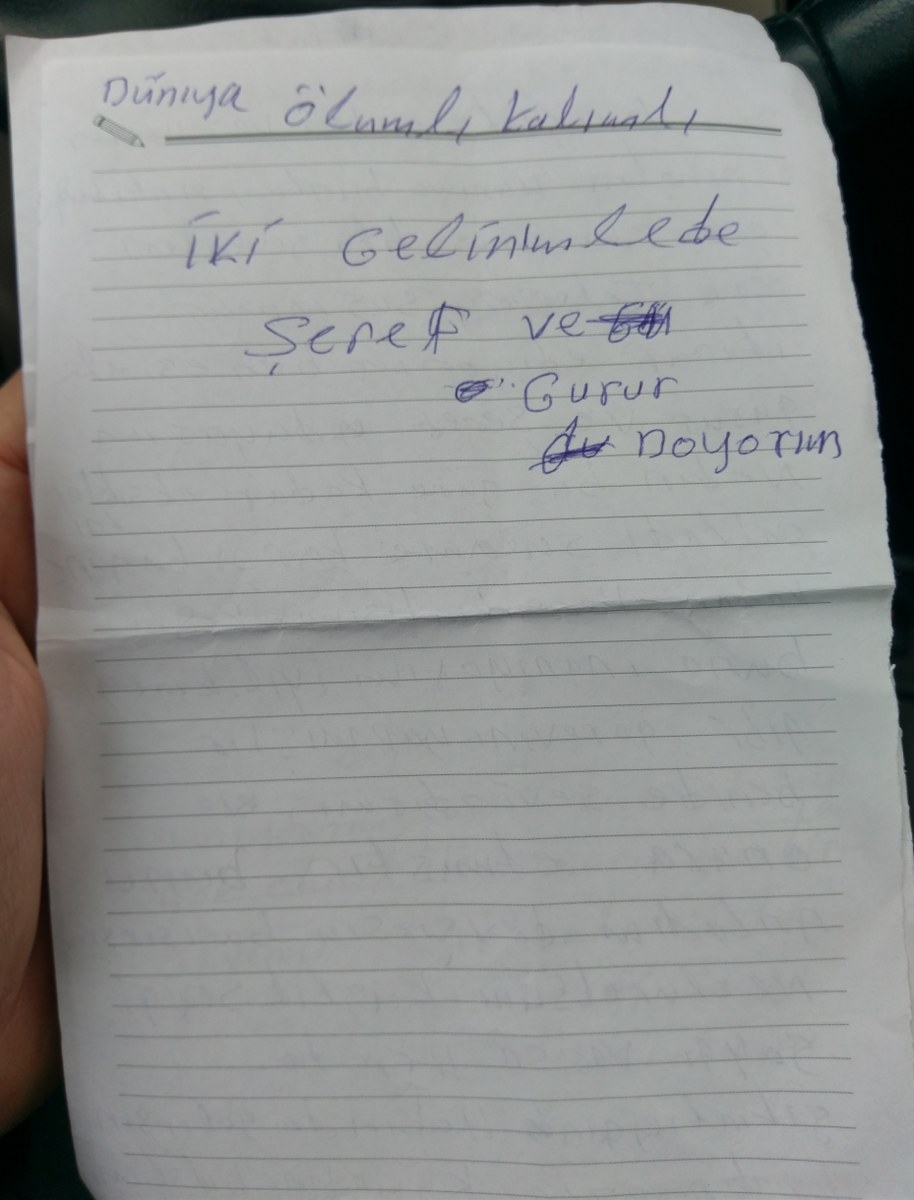 Dünıya Ölümlı, kalımlı,
İKİ Gelinimlede
Şeref ve
Gurur
Doyorum